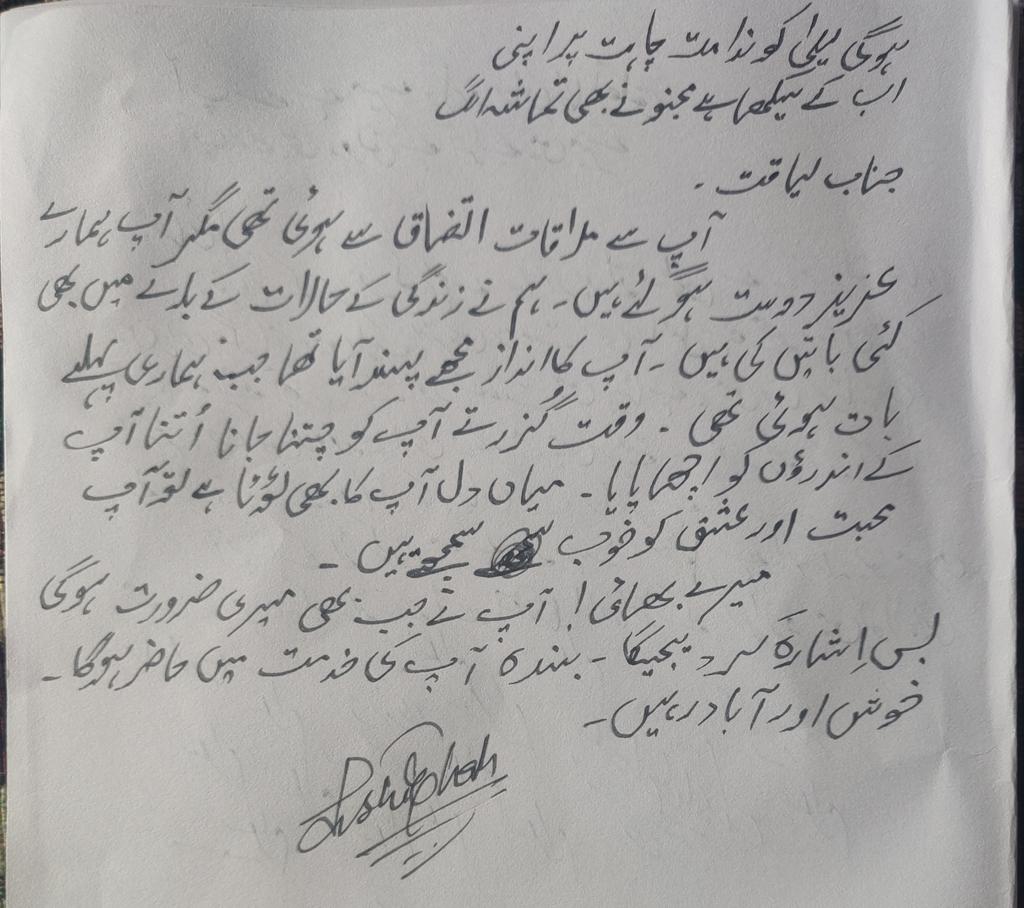 ہوگی لیلیٰ کو ندامت چاہت پر اپنی
اب کے سیکھا ہے مجنو نے بھی تماشہ الگ
جناب لیاقت ۔
آپ سے ملاقات اتفاق سے ہوئی تھی مگر آپ ہمارے
عزیز دوست ہو گئے ہیں ۔ ہم نے زندگی کے حالات کے بارے میں بھی
کئی باتیں کی ہیں ۔ آپ کا انداز مجھے پسند آیا تھا جب ہماری پہلے
بات ہوئی تھی ۔ وقت گُزرتے آپ کو جتنا جانا اُتنا آپ
کے اندرؤں کو اچھا پایا ۔ میاں دل آپ کا بھی ٹوٹا ہے تو آپ
محبت اور عشق کو خوب سمجھے ہیں ۔
میرے بھائی ! آپ نے جب بھی میری ضرورت ہوگی
بس اِشارہ کر دیجیگا ۔ بندہ آپ کی خدمت میں حاضر ہوگا ۔
خوش اور آباد رہیں ۔